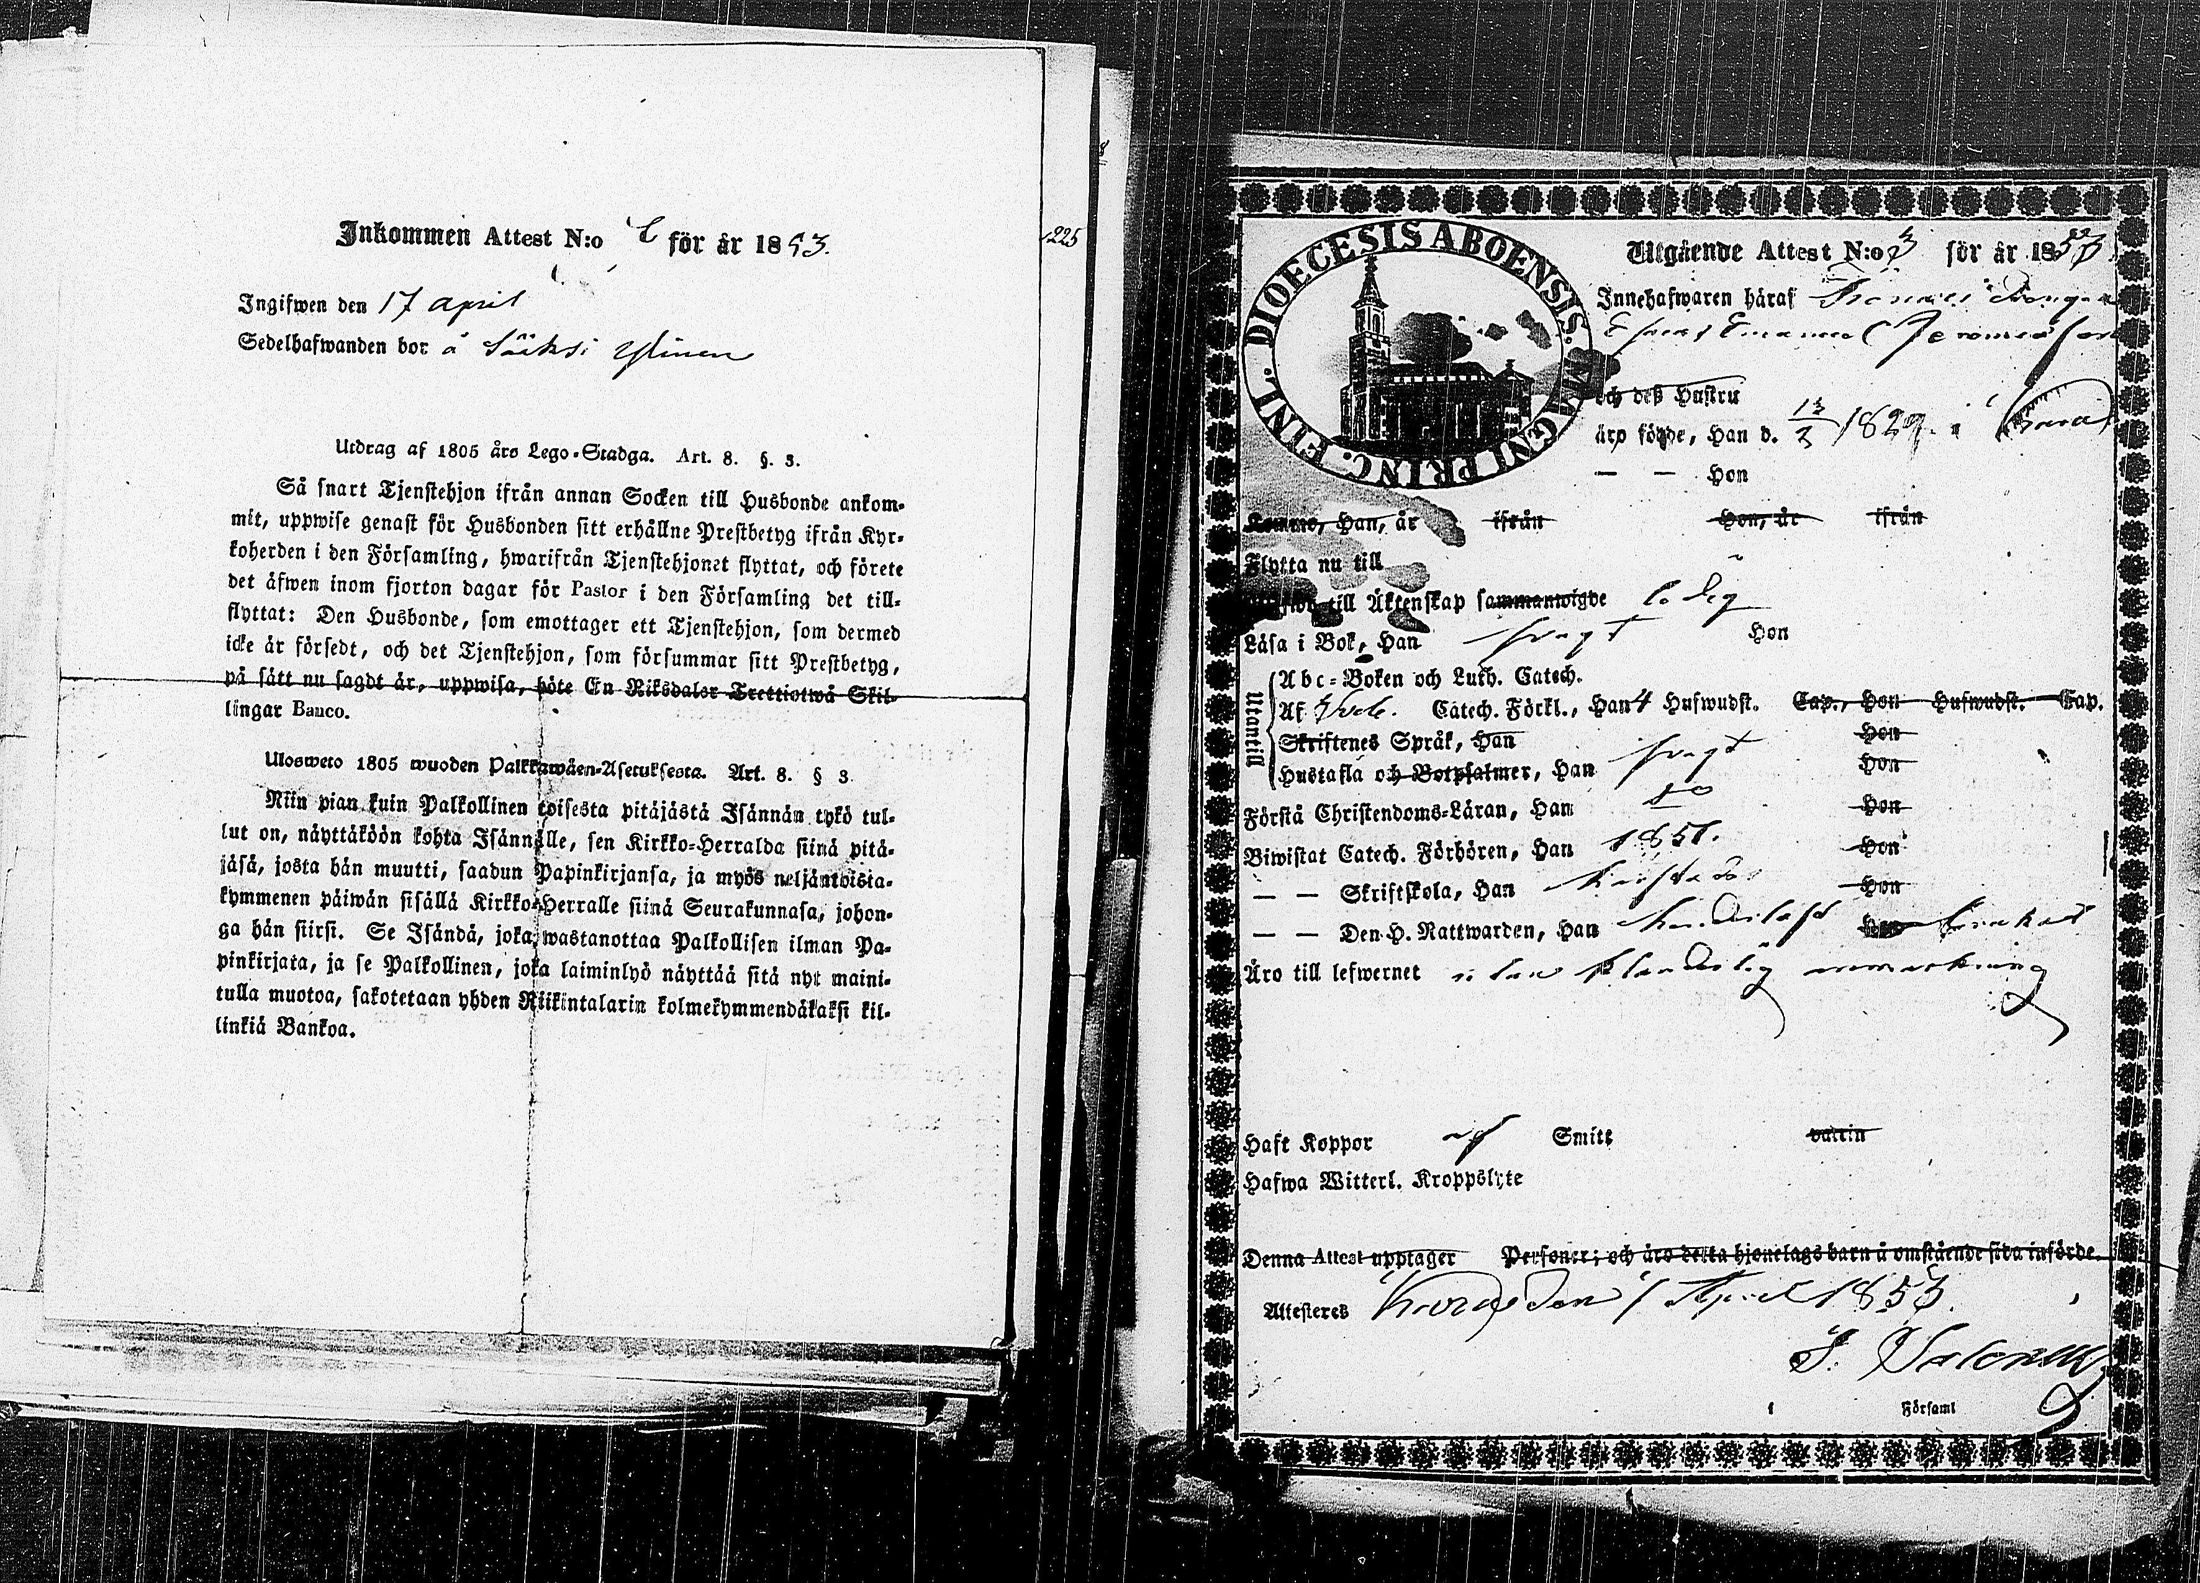 Inkommen Attest N:o för år 1853.
Ingifwen den 17 april
Sedelhafwanden bor å Sääksi Ylinen
Utdrag af 1805 års Lego-Stadga. Art. 8. §. 3.
Så snart Tjenstehjon ifrån annan Socken till Husbonde ankom-
mit, uppwise genast för Husbonden sitt erhållne Prestbetyg ifrån Kyr-
koherden i den Församling, hwarifrån Tjenstehjonet flyttat, och förete
det äfwen inom fjorton dagar för Pastor i den Församling det till-
flyttat: Den Husbonde, som emottager ett Tjenstehjon, som dermed
icke är försedt, och det Tjenstehjon, som försummar sitt Prestbetyg,
på sätt nu sagdt är, uppwisa, böte En Riksdaler Trettiotwå Skil-
lingar Banco.
Ulosweto 1805 wuoden Palkkawäen-Asetuksesta. Art. 8. § 3.
Niin pian kuin Palkollinen toisesta pitäjästä Isännän tykö tul-
lut on, näyttäköön kohta Isännälle, sen Kirkko-Herralda siinä pitä-
jäsä, josta hän muutti, saadun Papinkirjansa, ja myös neljäntoista-
kymmenen päiwän sisällä Kirkko-Herralle siinä Seurakunnasa, johon-
ga hän siirsi. Se Isändä, joka wastanottaa Palkollisen ilman Pa-
pinkirjata, ja se Palkollinen, joka laiminlyö näyttää sitä nyt maini-
tulla muotoa, sakotetaan yhden Riikintalarin kolmekymmendäkaksi kil-
linkiä Bankoa.
225
DIOECESIS ABOENSIS. MAGNI PRINC. FINL.
Utgående Attest N:o 3 för år 1853
Innehafwaren häraf
Emanuel
och deß Hustru
äro födde, Han d. 13/3 1829 i
— — Hon
Komne, Han, år ifrån Hon, år ifrån
Flytta nu till
till Äktenskap sammanwigde ledig
Läsa i Bok, Han swagt Hon
Utantill
Abc-Boken och Luth. Catech.
Af Sveb. Catech. Förkl., Han 4 Hufwudst. Cap., Hon Hufwudst. Cap.
Skriftenes Språk, Han Hon
Hustafla och Botpsalmer, Han swagt Hon
Förstå Christendoms-Läran, Han so Hon
Biwistat Catech. Förhören, Han 1851. Hon
— — Skriftskola, Han Hon
— — Den H. Nattwarden, Han
Äro till lefwernet utan klanderlig anmärkning
Haft Koppor af Smitt vaccin
Hafwa Witterl. Kroppslyte
Denna Attest upptager Personer; och äro detta hjonelags barn å omstående sida införde.
Attesteres den 1 April 1853.
Församl